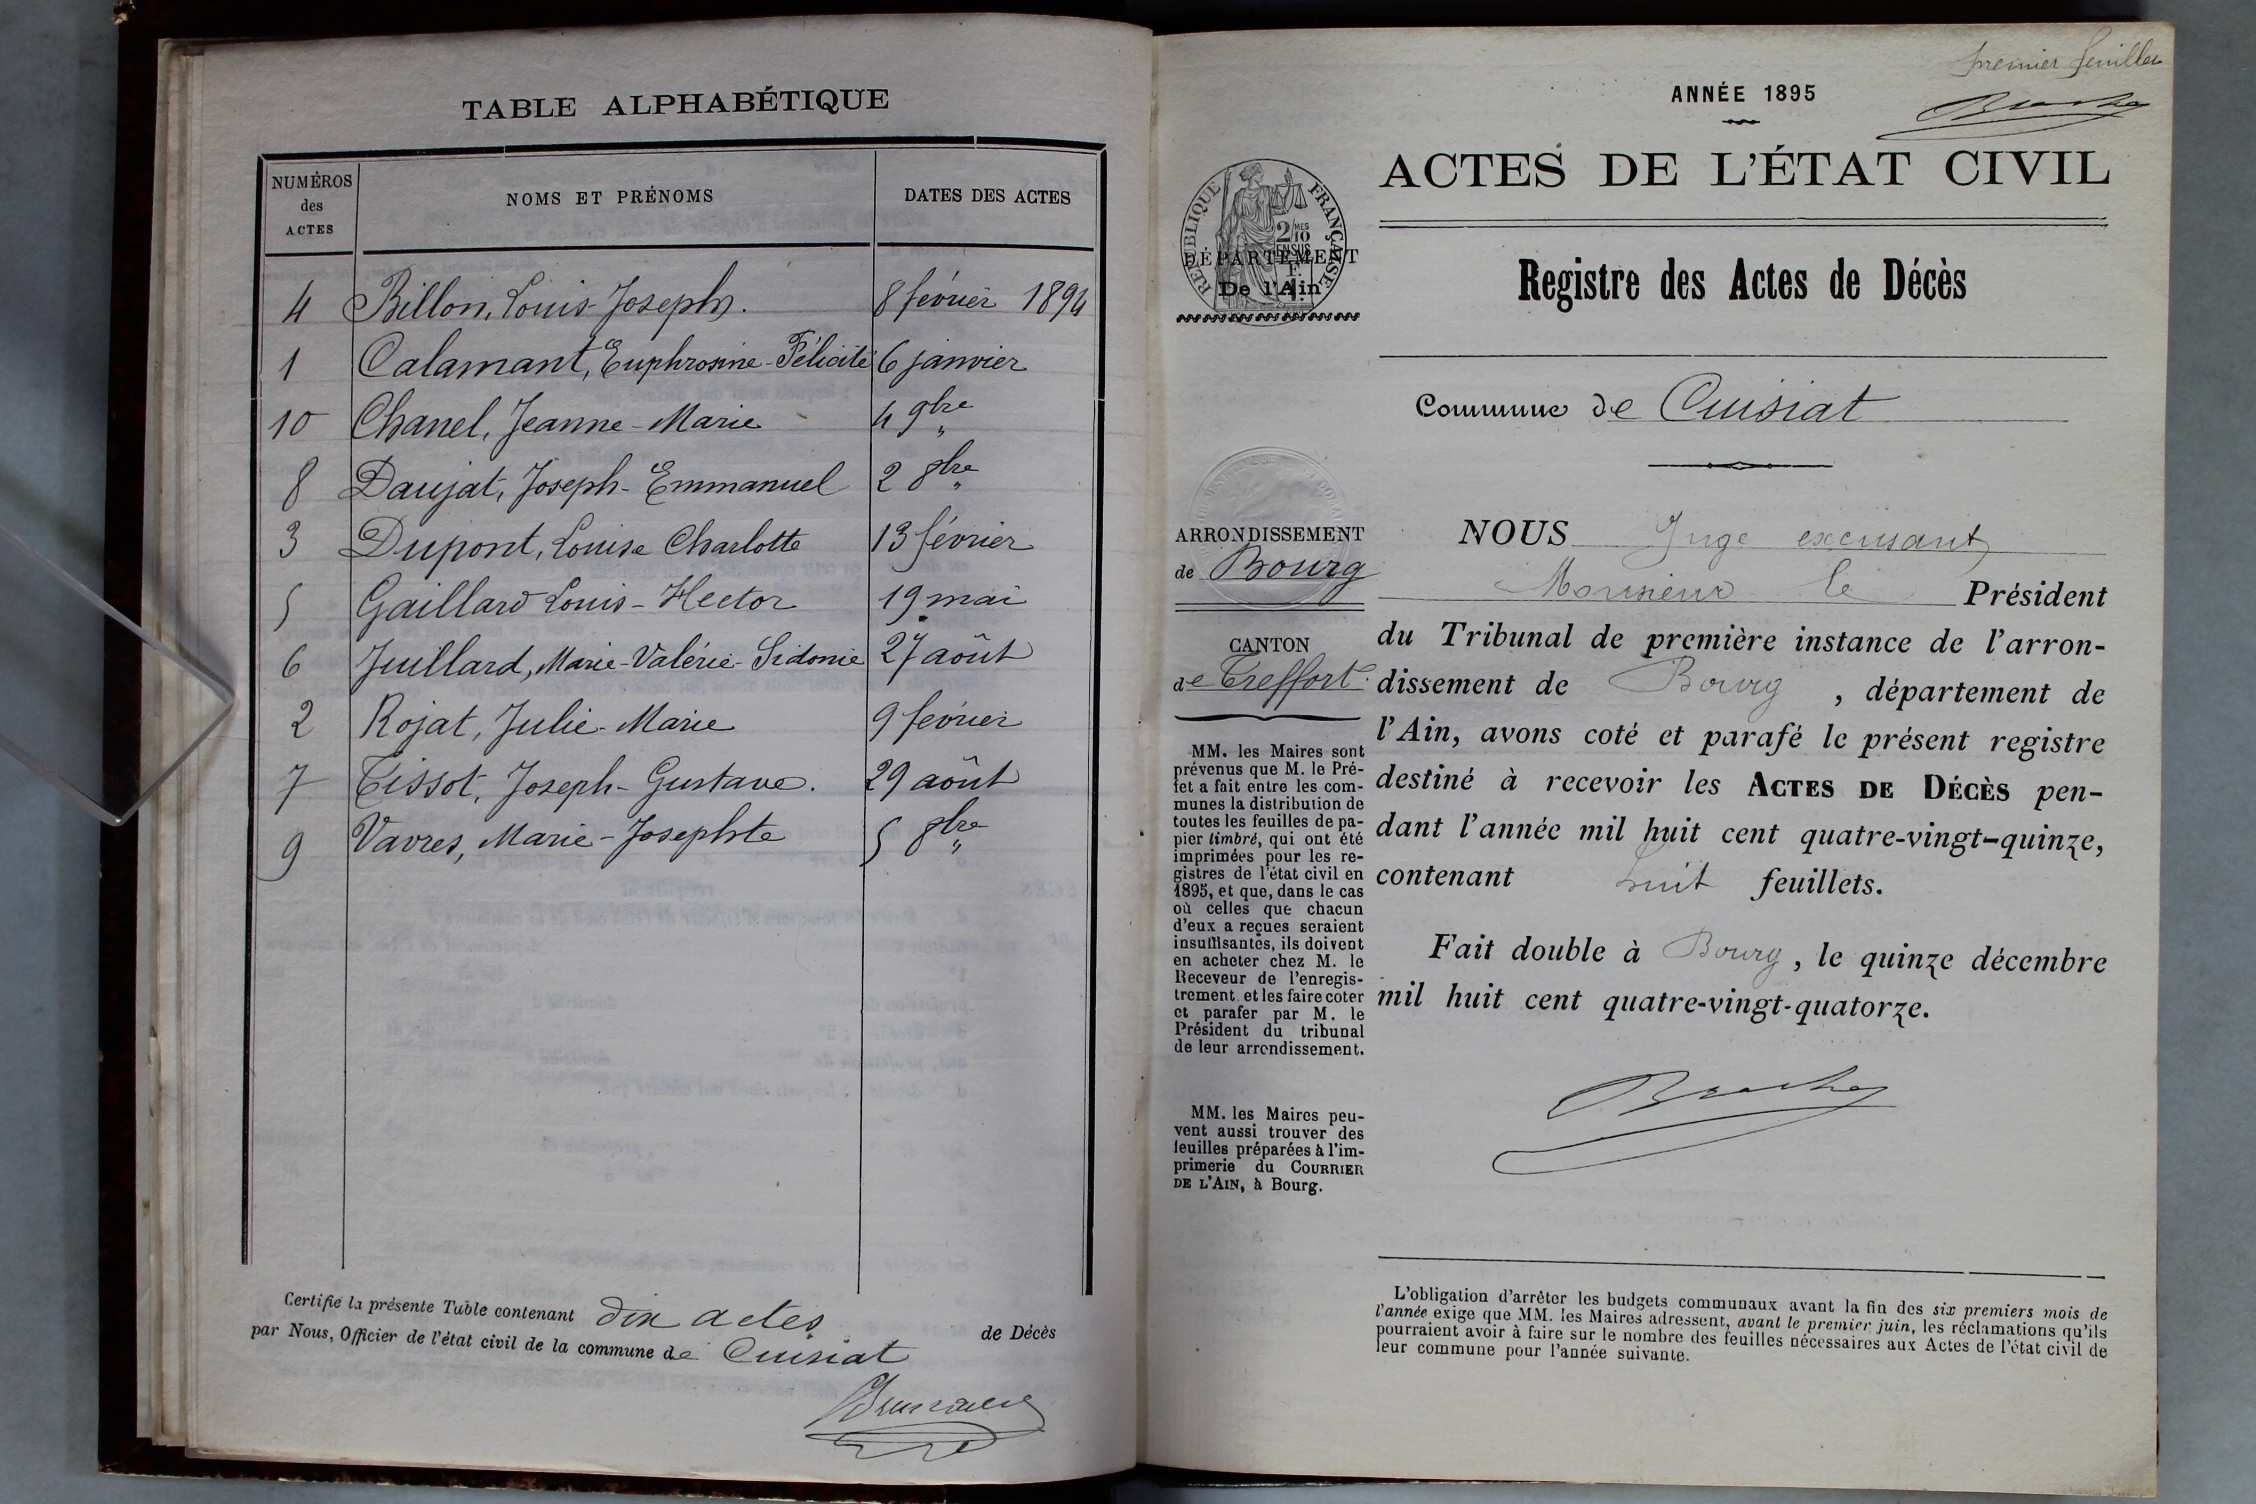 TABLE ALPHABÉTIQUE
NUMÉROS des ACTES NOMS ET PRÉNOMS DATES DES ACTES
4 Billon, Louis-Joseph. 8 février 1894
1 Calamant, Euphrosine-Félicité 6 janvier
10 Chanel, Jeanne-Marie 4 9bre "
8 Daujat, Joseph-Emmanuel 2 8bre "
3 Dupont, Louise Charlotte 13 février
5 Gaillard Louis-Hector 19 mai
6 Juillard, Marie-Valérie-Sidonie 27 août
2 Rojat, Julie-Marie 9 février
7 Tissot, Joseph-Gustave. 29 août
9 Vavres, Marie-Josephte 5 8bre "
Certifié la présente Table contenant dix actes de Décès
par Nous, Officier de l'état civil de la commune de Cuisiat
premier feuillet
ANNÉE 1895
ACTES DE L'ÉTAT CIVIL
RÉPUBLIQUE FRANÇAISE
2/10 MES
EN SUS
DÉPARTEMENT
De l'Ain
Registre des Actes de Décès
Commune de Cuisiat
ARRONDISSEMENT
de Bourg
CANTON
de Treffort
MM. les Maires sont
prévenus que M. le Pré-
fet a fait entre les com-
munes la distribution de
toutes les feuilles de pa-
pier timbré, qui ont été
imprimées pour les re-
gistres de l'état civil en
1895, et que, dans le cas
où celles que chacun
d'eux a reçues seraient
insuffisantes, ils doivent
en acheter chez M. le
Receveur de l'enregis-
trement et les faire coter
et parafer par M. le
Président du tribunal
de leur arrondissement.
MM. les Maires peu-
vent aussi trouver des
feuilles préparées à l'im-
primerie du COURRIER
DE L'AIN, à Bourg.
NOUS Juge excusant
Monsieur le Président
du Tribunal de première instance de l'arron-
dissement de Bourg , département de
l'Ain, avons coté et parafé le présent registre
destiné à recevoir les ACTES DE DÉCÈS pen-
dant l'année mil huit cent quatre-vingt-quinze,
contenant huit feuillets.
Fait double à Bourg, le quinze décembre
mil huit cent quatre-vingt-quatorze.
L'obligation d'arrêter les budgets communaux avant la fin des six premiers mois de
l'année exige que MM. les Maires adressent, avant le premier juin, les réclamations qu'ils
pourraient avoir à faire sur le nombre des feuilles nécessaires aux Actes de l'état civil de
leur commune pour l'année suivante.